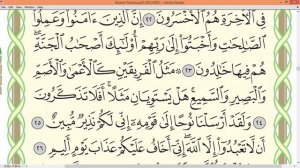 Mushaf Madinna.pdf (SECURED) - Adobe Reader
فِي ٱلۡأٓخِرَةِ هُمُ ٱلۡأَخۡسَرُونَ ٢٢ إِنَّ ٱلَّذِينَ ءَامَنُواْ وَعَمِلُواْ
ٱلصَّٰلِحَٰتِ وَأَخۡبَتُوٓاْ إِلَىٰ رَبِّهِمۡ أُوْلَٰٓئِكَ أَصۡحَٰبُ ٱلۡجَنَّةِۖ
هُمۡ فِيهَا خَٰلِدُونَ ٢٣ ۞ مَثَلُ ٱلۡفَرِيقَيۡنِ كَٱلۡأَعۡمَىٰ وَٱلۡأَصَمِّ
وَٱلۡبَصِيرِ وَٱلسَّمِيعِۚ هَلۡ يَسۡتَوِيَانِ مَثَلًاۚ أَفَلَا تَذَكَّرُونَ
٢٤ وَلَقَدۡ أَرۡسَلۡنَا نُوحًا إِلَىٰ قَوۡمِهِۦٓ إِنِّي لَكُمۡ نَذِيرٞ مُّبِينٌ ٢٥
أَن لَّا تَعۡبُدُوٓاْ إِلَّا ٱللَّهَۖ إِنِّيٓ أَخَافُ عَلَيۡكُمۡ عَذَابَ يَوۡمٍ أَلِيمٖ ٢٦